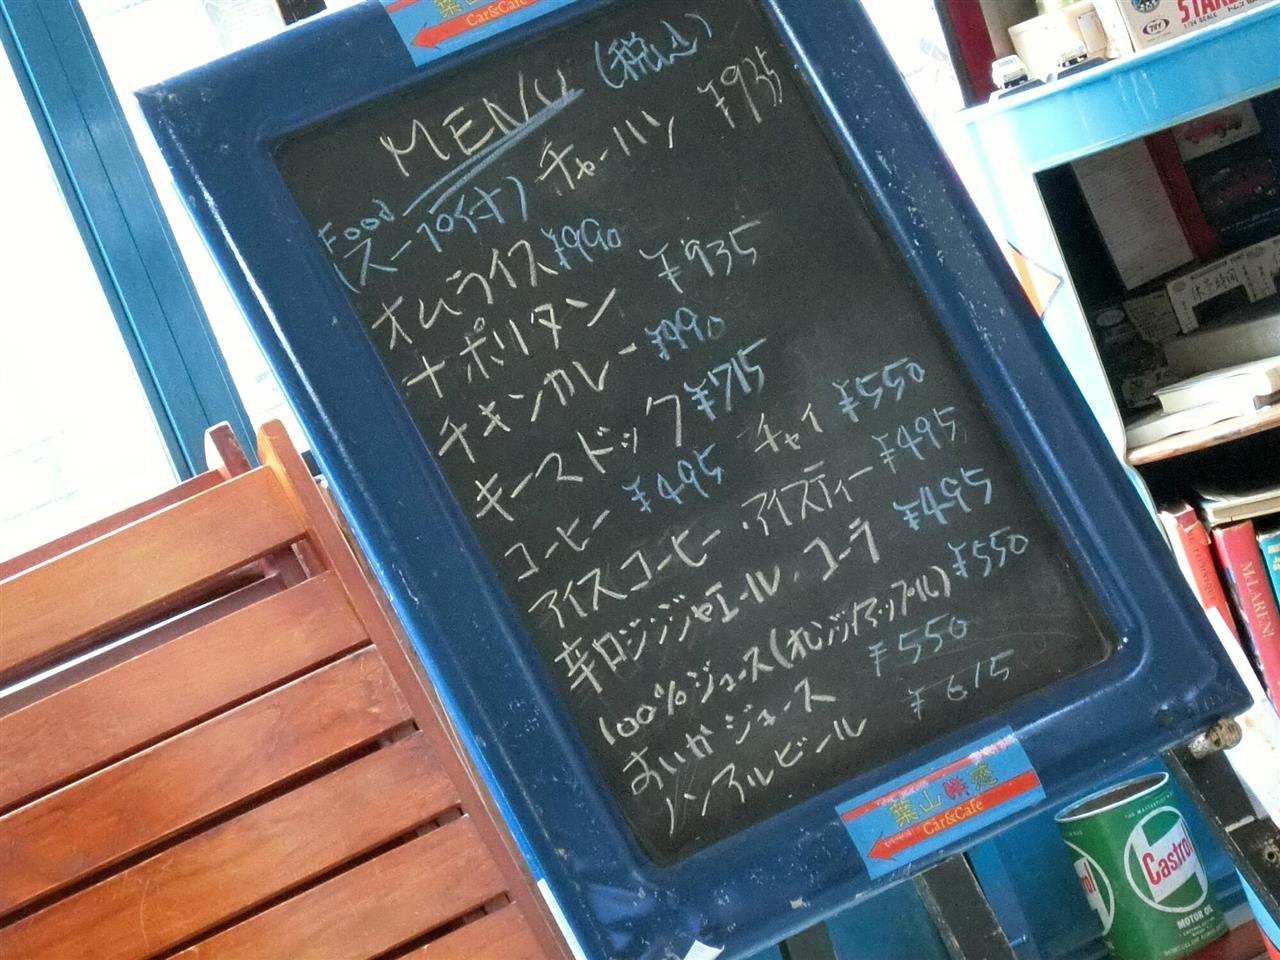 葉山
Car&Cafe
MENU (税込)
Food
(スープ付き) チャーハン ¥935
オムライス ¥990
ナポリタン ¥935
チキンカレー ¥990
キースドック ¥715
コーヒー ¥495 チャイ ¥550
アイスコーヒー・アイスティー ¥495
辛口ジンジャエール、コーラ ¥495
100%ジュース(オレンジ/アップル) ¥550
すいかジュース ¥550
ノンアルビール ¥615
葉山
Car&Cafe
Castrol
MOTOR OIL
McLAREN!
休業時間
STAR
1/24 SCALE